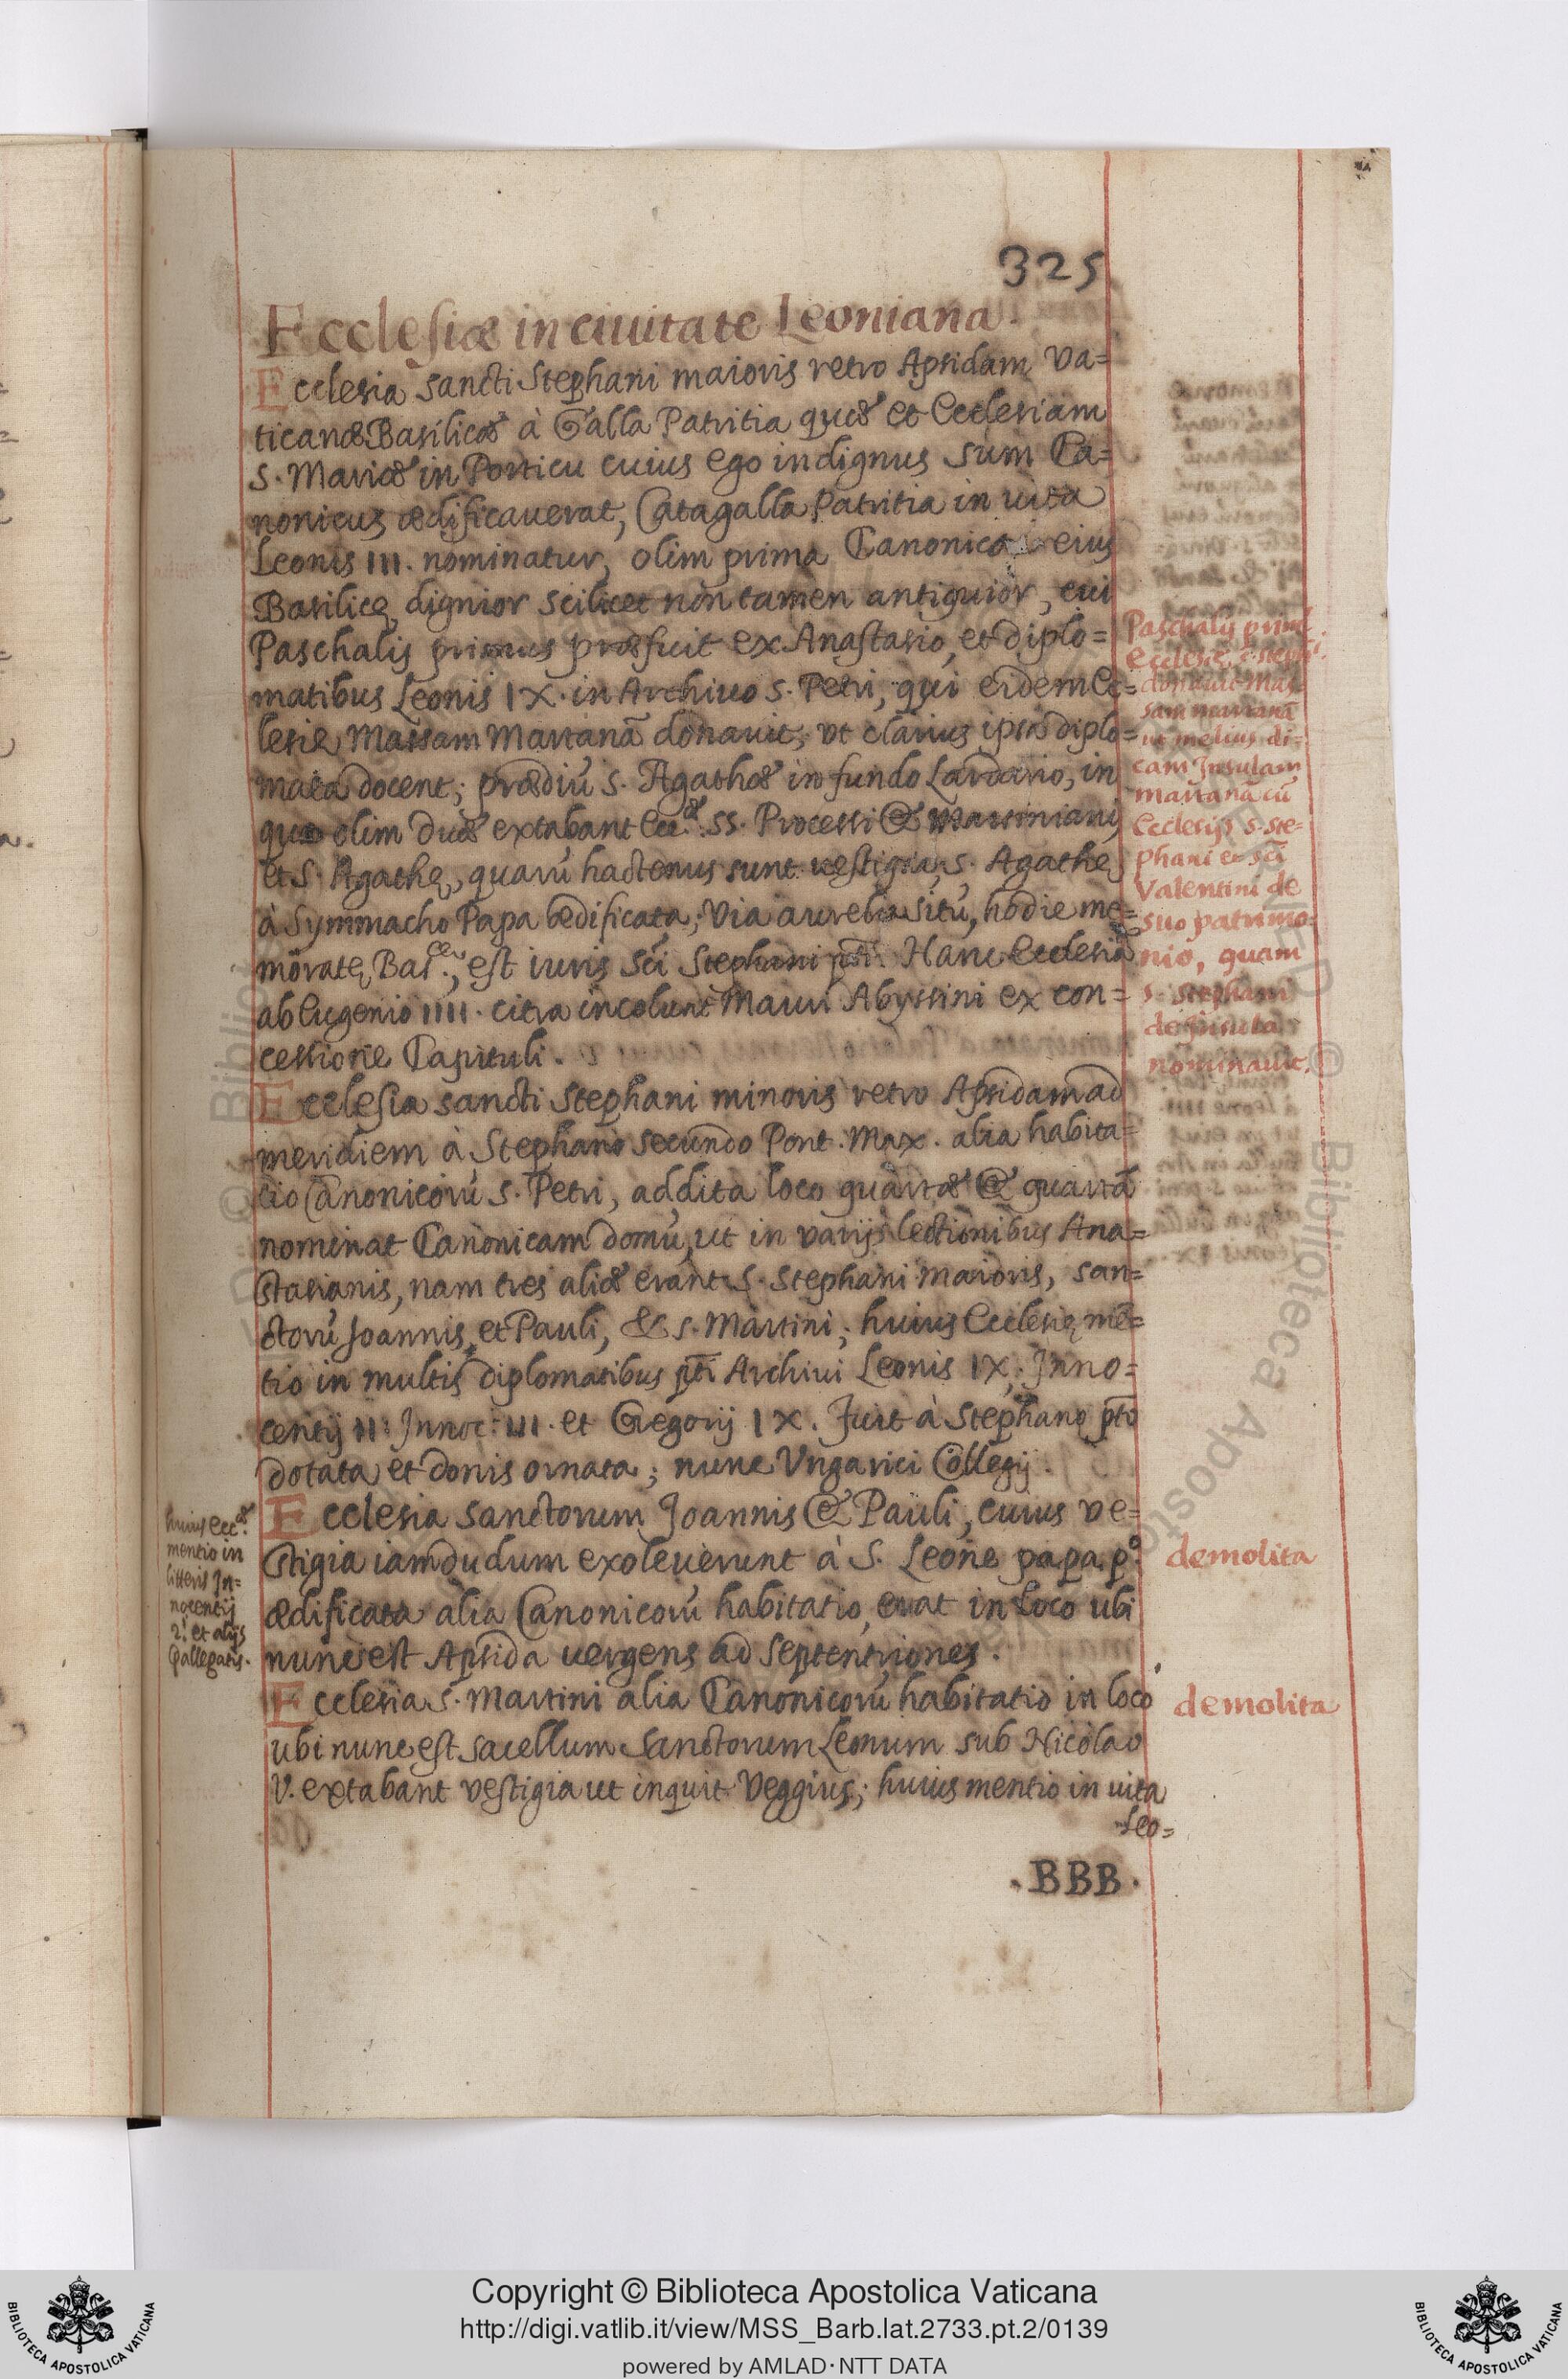 325
Ecclesiæ in ciuitate Leoniana.
Ecclesia sancti Stephani maioris retro Apsidam Va=
ticanæ Basilicæ à Galla Patritia quæ et Ecclesiam
S. Mariæ in Porticu cuius ego indignus sum Ca=
nonicus ædificauerat, Catagalla Patritia in uita
Leonis III. nominatur, olim prima Canonica eius
Basilicę, dignior scilicet non tamen antiquior, cui
Paschalis primus præfuit ex Anastasio, et diplo=
matibus Leonis IX. in Archiuo S. Petri, qui eidem Ec=
clesię Massam Martanā donauit, ut clarius ipsa diplo=
mata docent; prædiū S. Agathæ in fundo Lardario, in
quo olim duæ extabant Ecc.æ SS. Processi & Martiniani,
et S. Agathę, quarū hactenus sunt uestigia, S. Agathę
à Symmacho Papa ædificata; Via aurelia sitū, hodie me=
moratę Bas.cę, est iuris Sci Stephani pti. Hanc Ecclesiā
ab Eugenio IIII. citra incolunt Mauri Abyssini ex con=
cessione Capituli.
Ecclesia sancti Stephani minoris retro Apsidam ad
meridiem à Stephano secundo Pont. Max. alia habita=
tio Canonicorū S. Petri, addita loco quarta & quartā
nominat Canonicam domū, ut in varijs lectionibus Ana=
stasianis, nam tres aliæ erant S. Stephani maioris, san=
ctorū Joannis, et Pauli, & S. Martini; huius Ecclesię mē=
tio in multis diplomatibus pti Archiui Leonis IX. Inno=
centij II. Innoc. III. et Gregorij IX. Fuit à Stephano pto
dotata et donis ornata; nunc Vngarici Collegij.
Ecclesia sanctorum Joannis & Pauli, cuius ve=
stigia iamdudum exoleuerunt à S. Leone papa p.o
ædificata alia Canonicorū habitatio, erat in loco ubi
nunc est Apsida uergens ad septentriones.
Ecclesia S. Martini alia Canonicorū habitatio in loco
ubi nunc est sacellum Sanctorum Leonum sub Nicolao
V. extabant vestigia ut inquit Veggius; huius mentio in uita
Leo=
.BBB.
Paschalis prim.
Ecclesię S. Steph.i
donauit Mas=
sam martanā
ut melius di=
cam Insulam
martanā cū
Ecclesijs S. Ste=
phani et sci
Valentini de
suo patrimo=
nio, quam
S. Stephani
de
nominauit.
demolita
demolita
huius ecc.æ
mentio in
litteris In=
nocentij
2.i et alijs
allegatis.
Copyright © Biblioteca Apostolica Vaticana
http://digi.vatlib.it/view/MSS_Barb.lat.2733.pt.2/0139
powered by AMLAD·NTT DATA
BIBLIOTECA APOSTOLICA VATICANA
BIBLIOTECA APOSTOLICA VATICANA